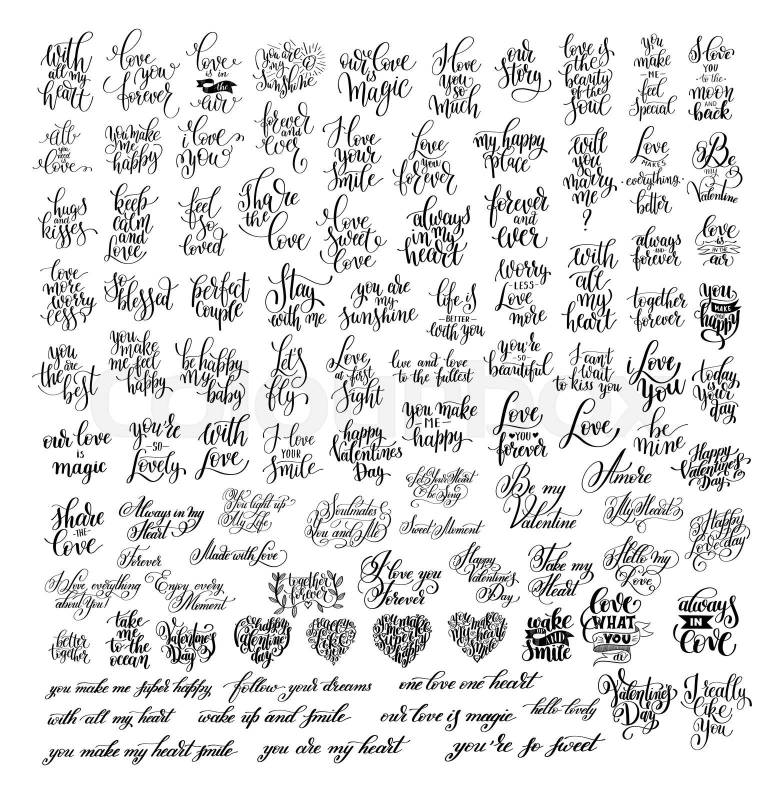 with
all my
heart
love
you
forever
love
is in
the
air
you are
my
sunshine
our love
is
magic
I love
you so
much
our
story
love is
the
beauty
of the
soul
you
make
ME
feel
special
I love
YOU
to the
moon
AND
back
All
you
need is
love
you make
me
happy
i love
you
forever
and
ever
I love
your
smile
Love
you
forever
my happy
place
will
you
marry
me
?
Love
MAKES
everything
better
Be
my
Valentine
hugs
and
kisses
keep
calm
and
love
feel
so
loved
Share
the
love
love
sweet
love
always
in my
heart
forever
and
ever
with
all
my
heart
always
AND
forever
love
IS
IN THE
air
love
more
worry
less
so
blessed
perfect
couple
Stay
with me
you are
my
sunshine
life is
BETTER
with you
worry
LESS
Love
more
together
forever
you
MAKE
ME
happy
you
are
the
best
you
make
me feel
happy
be happy
my
baby
Let's
fly
Love
at first
sight
live and love
to the fullest
you're
SO
beautiful
I can't
wait
to kiss you
i Love
you
today
is
your
day
our love
is
magic
you're
SO
Lovely
with
Love
I love
YOUR
smile
happy
Valentines
Day
you make
ME
happy
Love
YOU
forever
Love
be
mine
Happy
Valentine's
Day
Share
THE
love
Always in my
Heart
You light up
My Life
Soulmates
You and Me
Let Your Heart
be Sing
Sweet Moment
Be my
Valentine
Amore
My Heart
Happy
Love day
Forever
Made with Love
I Love everything
about You!
Enjoy every
Moment
together
forever
I love you
Forever
Happy
Valentine's
Day
Take my
Heart
Hello my
Love
better
together
take
me to
the
ocean
Valentine's
Day
happy
Valentine's
day
you make
me super
happy
you make
my heart
smile
wake
UP AND
smile
love
WHAT
YOU
do
always
IN
love
you make me super happy
follow your dreams
one love one heart
with all my heart
wake up and smile
our love is magic
hello lovely
Valentine's
Day
I really
like
You
you make my heart smile
you are my heart
you're so sweet